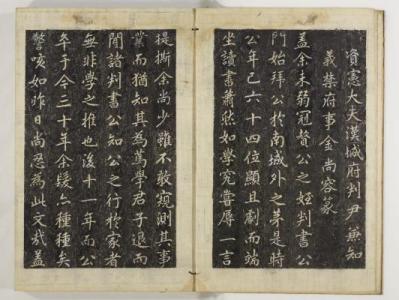 資憲大夫漢城府判尹兼知
義禁府事金尚容篆
蓋余未弱冠贅公之姪判書公
門始拜公於南城外之第是時
公年已六十四位顯且劇而端
坐讀書蕭然如學究嘗辱一言
提撕余尚少雖不敢窺測其事
業而猶知其為篤學君子退而
聞諸判書公知公之行於家者
無非學之推也後十一年而公
卒于今三十年余髮亦種種矣
警咳如昨日尚忍為此文哉蓋